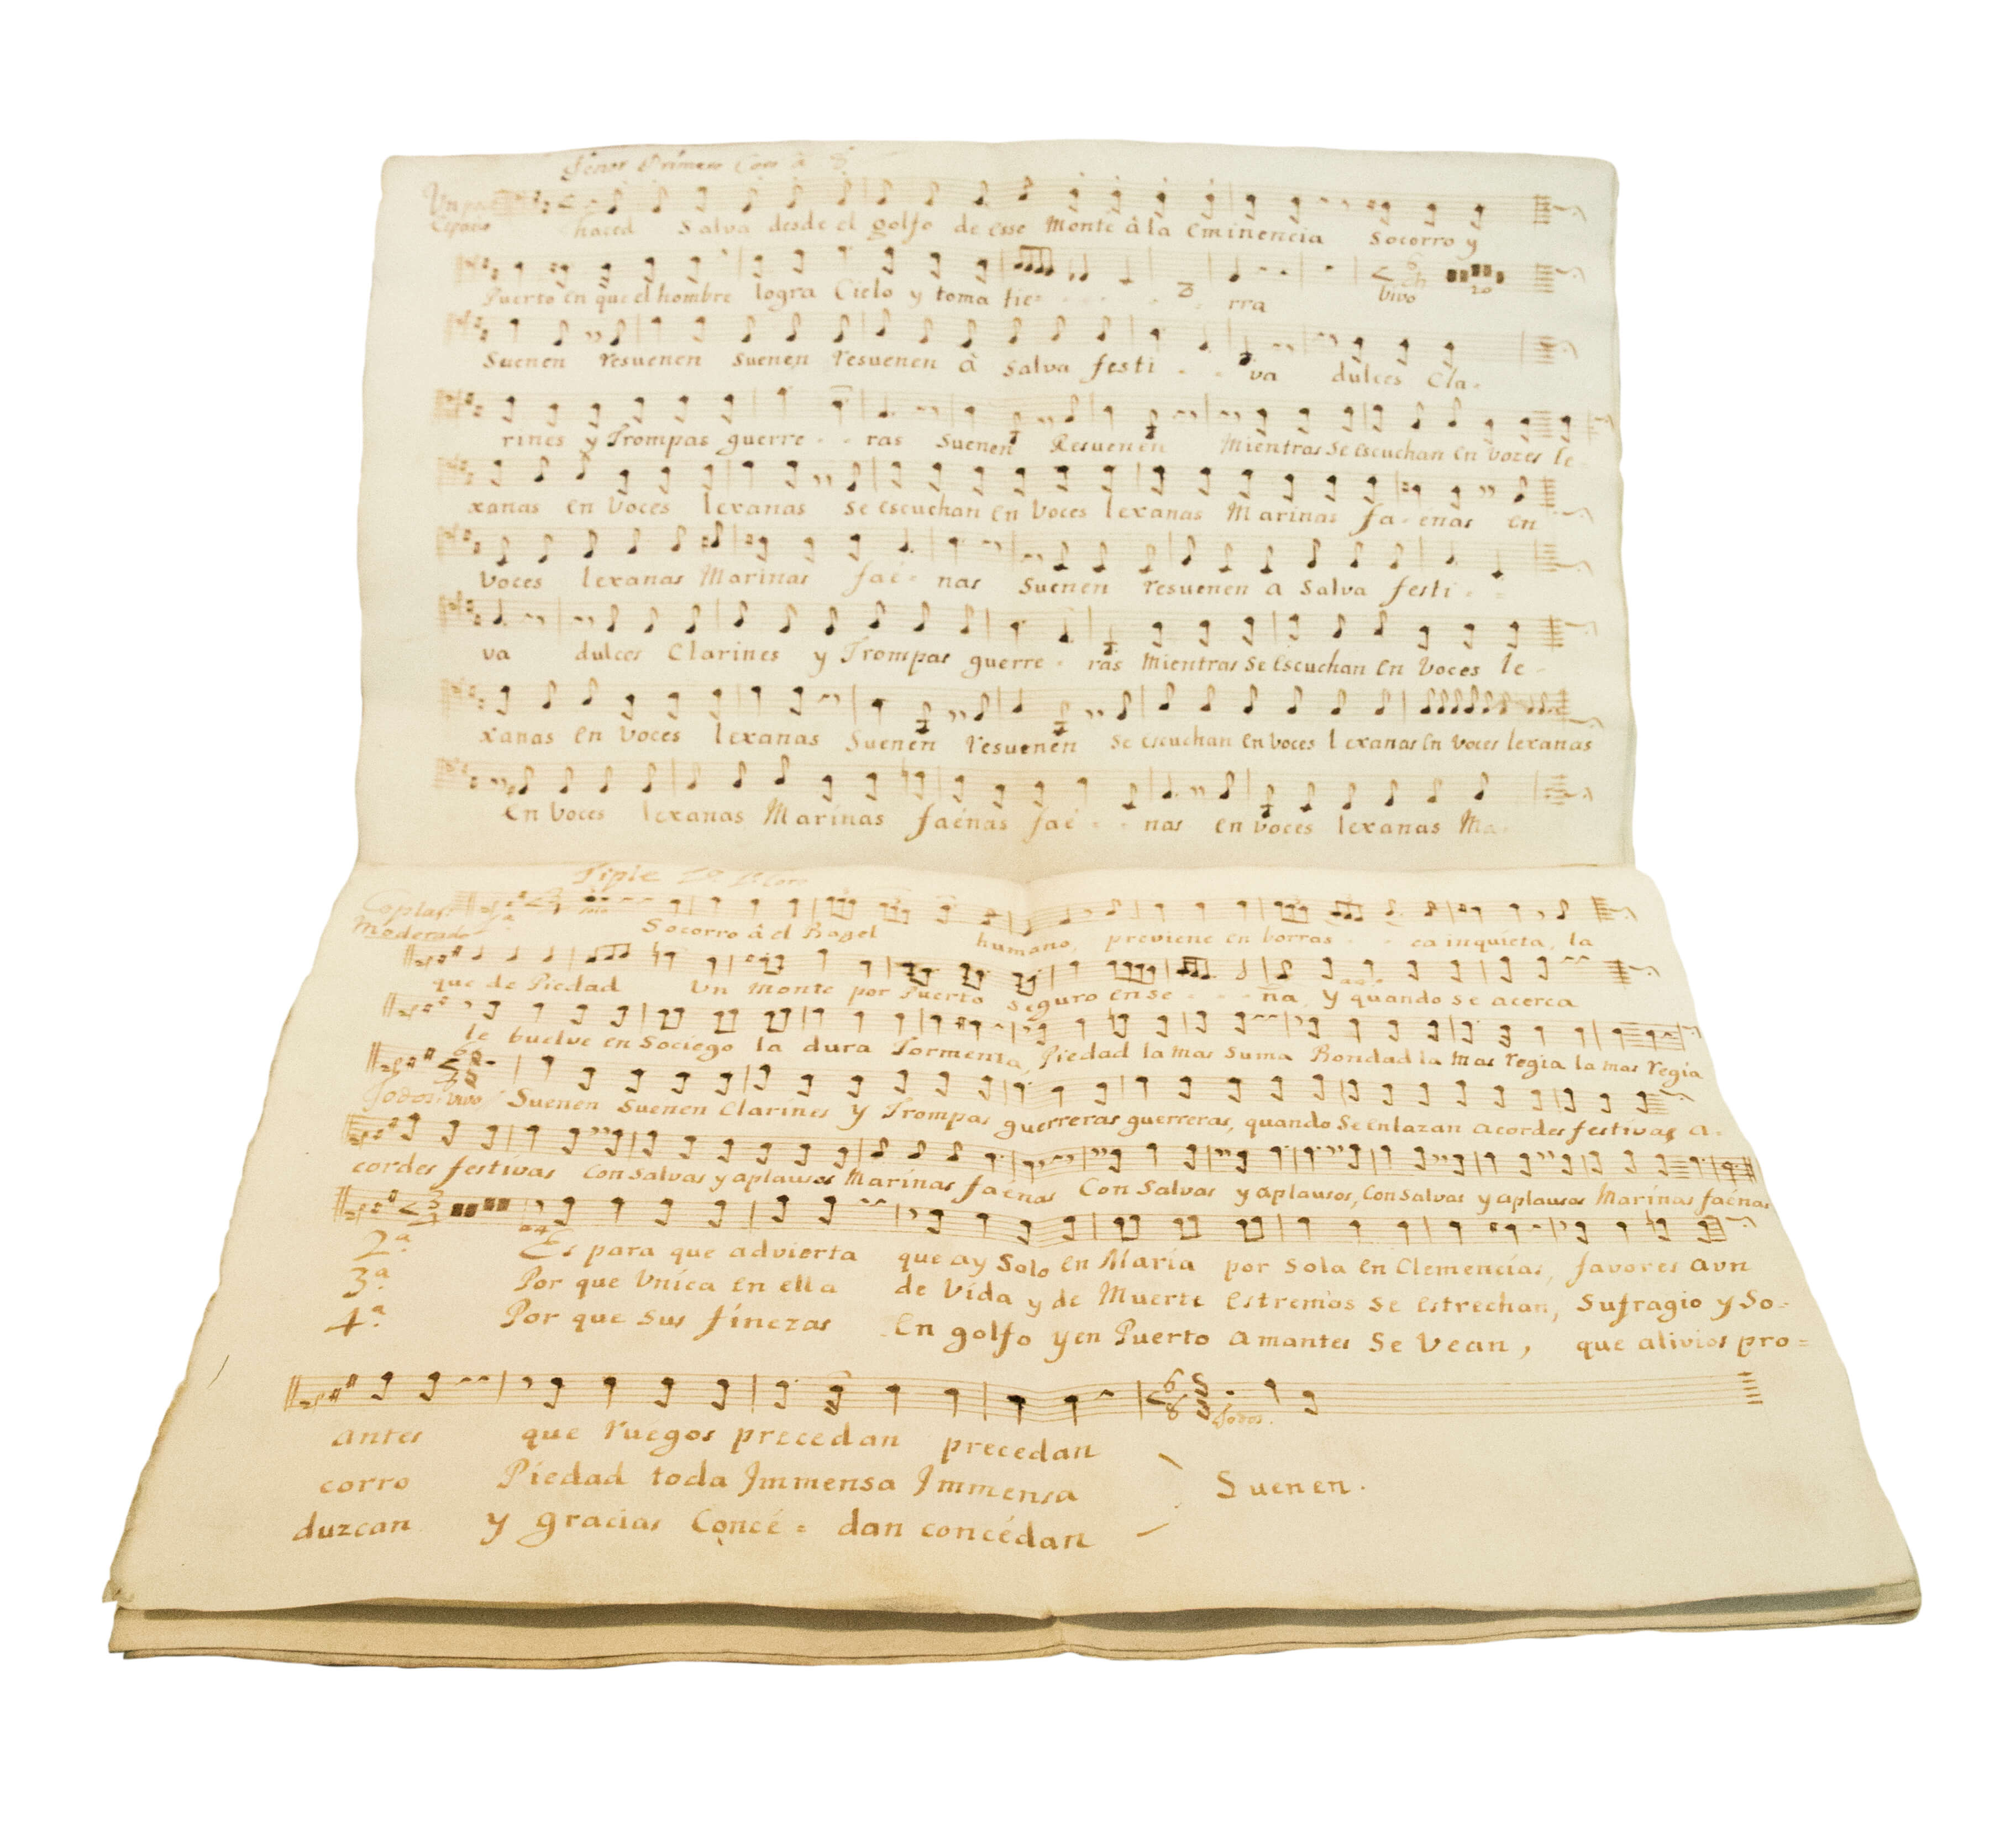 Tenor Primero Coro à 8
Un poco
haced Salva desde el golfo de esse Monte à la eminencia Socorro y
Puerto en que el hombre logra Cielo y toma tie= - - - - rra Vivo 20
Suenen resuenen Suenen resuenen à Salva festi - - va dulces Cla-
rines y Trompas guerre - - ras Suenen Resuenen Mientras Se escuchan en vozes le-
xanas en Voces lexanas se escuchan en Voces lexanas Marinas fa-énas en
Voces lexanas Marinas faé= nas Suenen resuenen a Salva festi - -
va dulces Clarines y Trompas guerre - ras Mientras Se Escuchan en Voces le-
xanas en Voces lexanas Suenen resuenen Se escuchan en voces lexanas en voces lexanas
en Voces lexanas Marinas faénas faé - - nas en voces lexanas Ma-
Tiple 2º 1º Coro
Coplas
Moderado
1ª
Socorro â el Bagel humano, previene en borras - - ca inquieta, la
que de Piedad Un Monte por Puerto Seguro ense - - - ña, y quando se acerca
le buelve en Sociego la dura Tormenta, Piedad la mas Suma Bondad la mas regia la mas regia
Todos. Vivo Suenen Suenen Clarines y Trompas guerreras guerreras, quando Se enlazan acordes festivas a-
cordes festivas Con Salvas y aplausos Marinas faénas Con Salvas y aplausos, Con Salvas y aplausos Marinas faénas
2ª Es para que advierta que ay Solo en Maria por Sola en Clemencias, favores aun
3ª Por que Unica en ella de Vida y de Muerte estremos se estrechan, Sufragio y So-
4ª Por que sus finezas En golfo y en Puerto amantes se Vean, que alivios pro=
Todos.
antes que ruegos precedan precedan
corro Piedad toda Immensa Immensa Suenen.
duzcan y gracias Concé = dan concédan